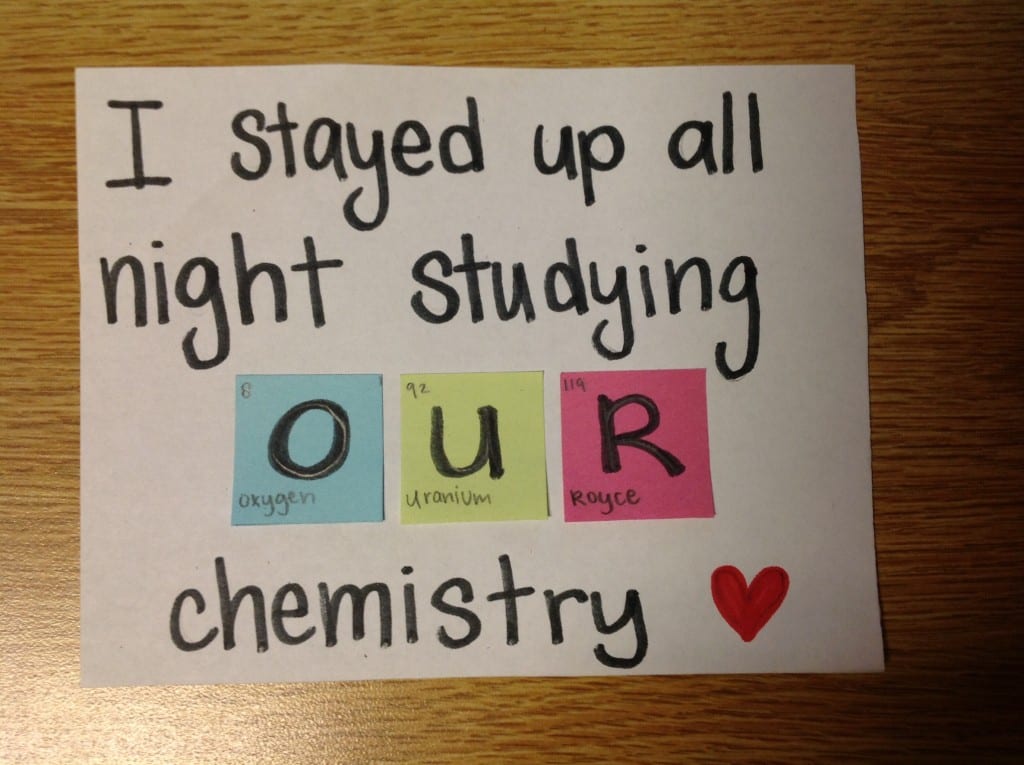 I stayed up all
night studying
8 92 119
O U R
oxygen uranium Royce
chemistry